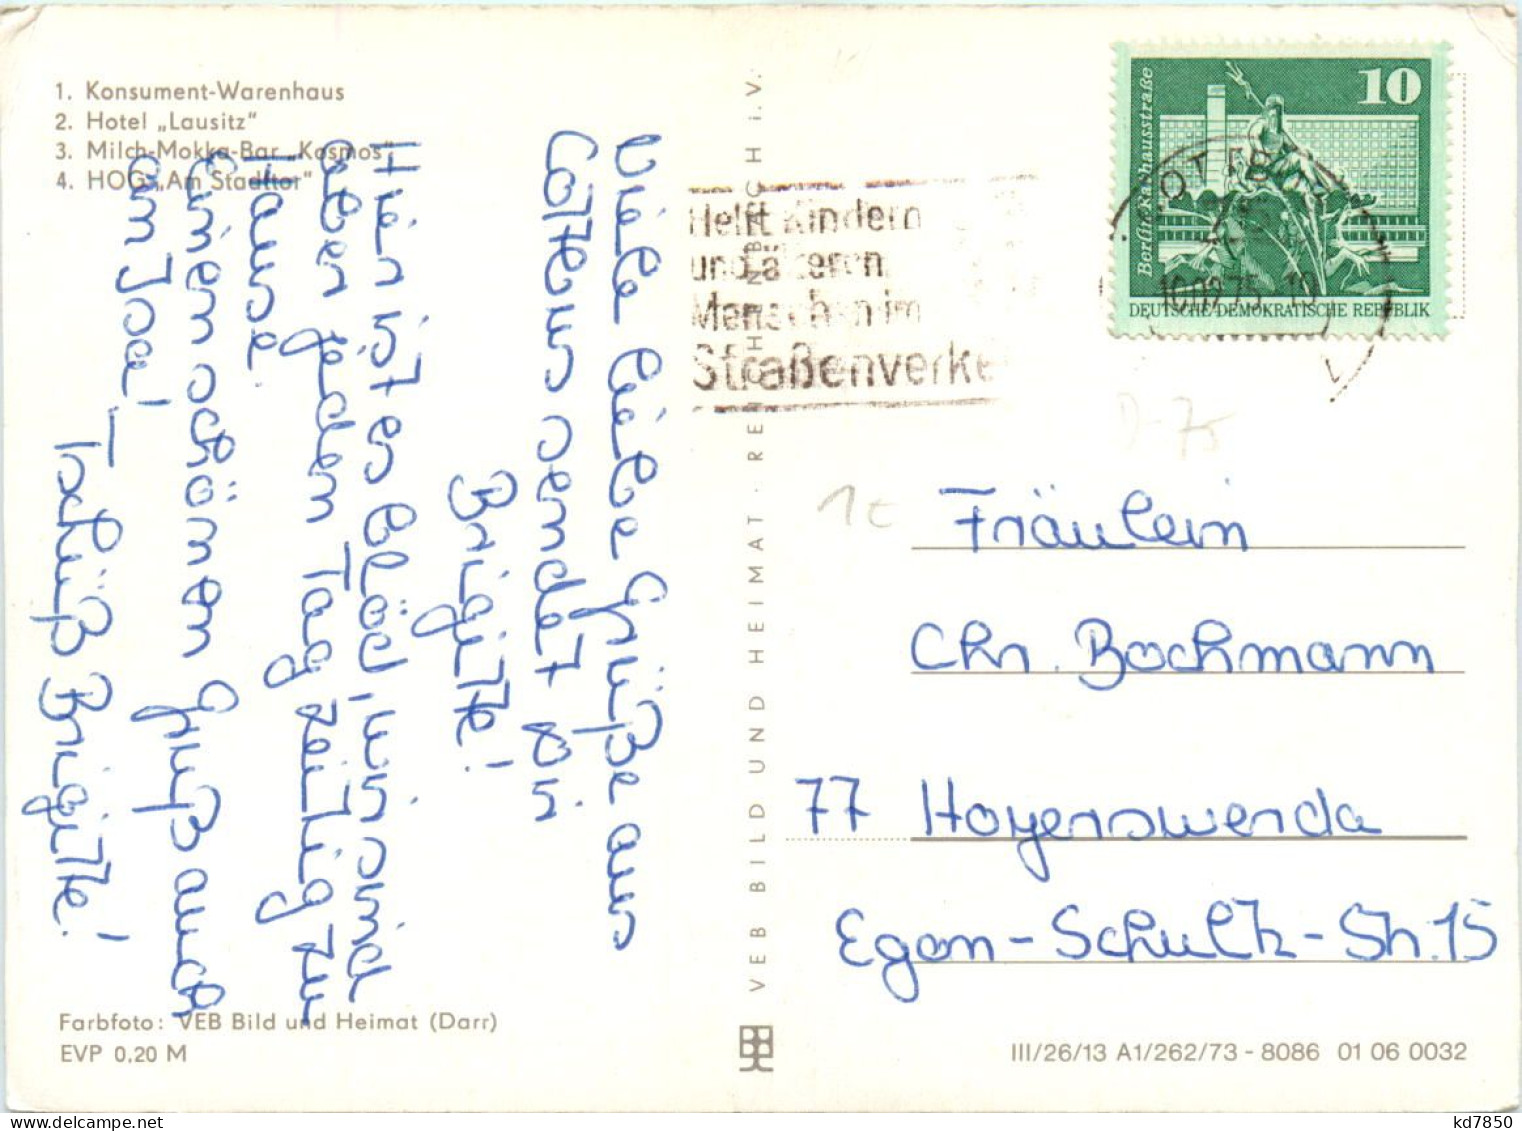 1. Konsument-Warenhaus
2. Hotel „Lausitz“
3. Milch-Mokka-Bar „Kosmos“
4. HOG „Am Stadttor“
Viele liebe Grüße aus
Cottbus sendet Dir
Brigitte!
Hier ist es blöd, wir sind
aber jeden Tag zeitig zu
Hause.
Einen schönen Gruß auch
an Joe!
Tschüß Brigitte!
Farbfoto: VEB Bild und Heimat (Darr)
EVP 0,20 M
VEB BILD UND HEIMAT · REICHENBACH i.V.
Helft Kindern
und älteren
Menschen im
Straßenverke
10
Berlin, Rathausstraße
DEUTSCHE DEMOKRATISCHE REPUBLIK
COTTB
D-75
1€
Fräulein
Chr. Bochmann
77 Hoyerswerda
Egon-Schultz-Str. 15
III/26/13 A1/262/73 - 8086 01 06 0032
kd7850